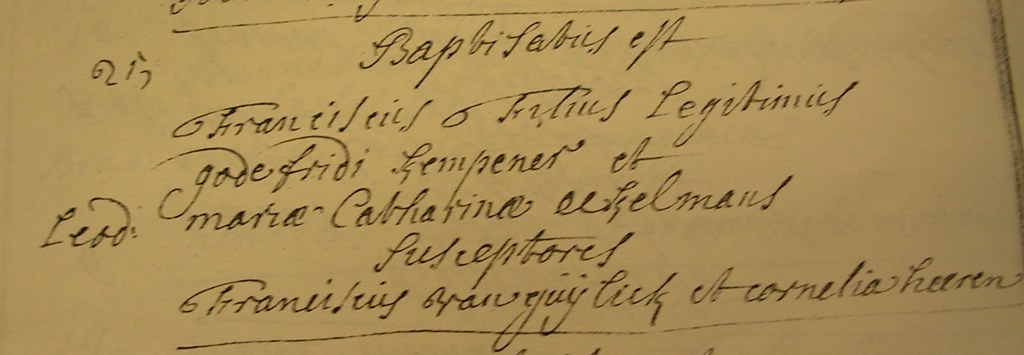 Baptisatus est
21
Franciscus Filius Legitimus
godefridi Kempener et
Leod: mariæ Catharinæ aekelmans
Susceptores
Franciscus van guÿlick et cornelia heeren